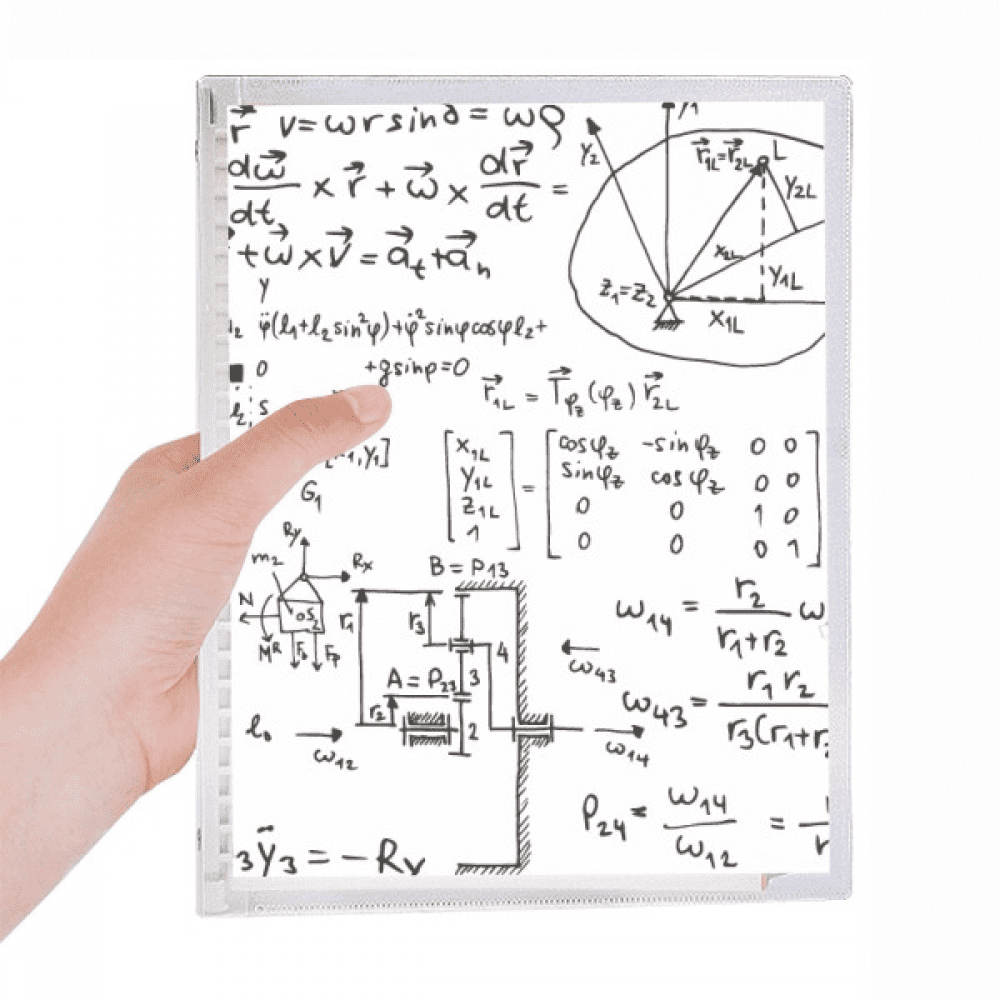 r⃗ v = ωr sin∂ = ωρ
dω⃗/dt × r⃗ + ω⃗ × dr⃗/dt =
+ ω⃗ × v⃗ = a⃗t + a⃗n
y
φ̈(l1+l2 sin²φ)+φ̇² sinφcosφl2+
0 +gsinφ=0
l2; s
,y1]
G1
y2
r⃗1L=r⃗2L L
y2L
x2L
y1L
z1=z2
x1L
r⃗1L = T⃗φz(φz) r⃗2L
[x1L] = [cosφz -sinφz 0 0]
[y1L] [sinφz cosφz 0 0]
[z1L] [0 0 1 0]
[1] [0 0 0 1]
Ry
m2 Rx
N
MR F
B = P13
r1 r3
4
A = P23 3
r2 2
l0 ω12
ω14
ω43
ω14 = r2/(r1+r2) ω
ω43 = r1 r2/(r3(r1+r
P24 = ω14/ω12 =
3ÿ3 = -Rv